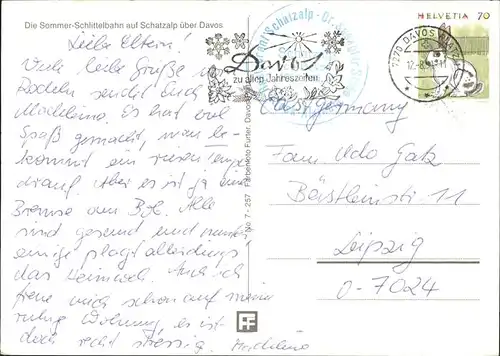 Die Sommer-Schlittelbahn auf Schatzalp über Davos
Liebe Eltern!
Viele liebe Grüße vom
Rodeln sendet Euch
Madeleine. Es hat viel
Spaß gemacht, man be-
kommt ein Tempo
drauf. Aber es ist ja eine
Bremse am Alle
sind gesund und munter
einige plagt allerdings
das Heimweh. Auch ich
freue mich schon auf meine
ruhige Wohnung, es ist
doch recht stressig. Madeleine
No 7 - 257 Farbenfoto Furter, Davos
Davos
zu allen Jahreszeiten
Schatzalp
HELVETIA 70
7270 DAVOS PLATZ
12.-8.
Germany
Fam. Udo Gatz
11
Leipzig
O-7024